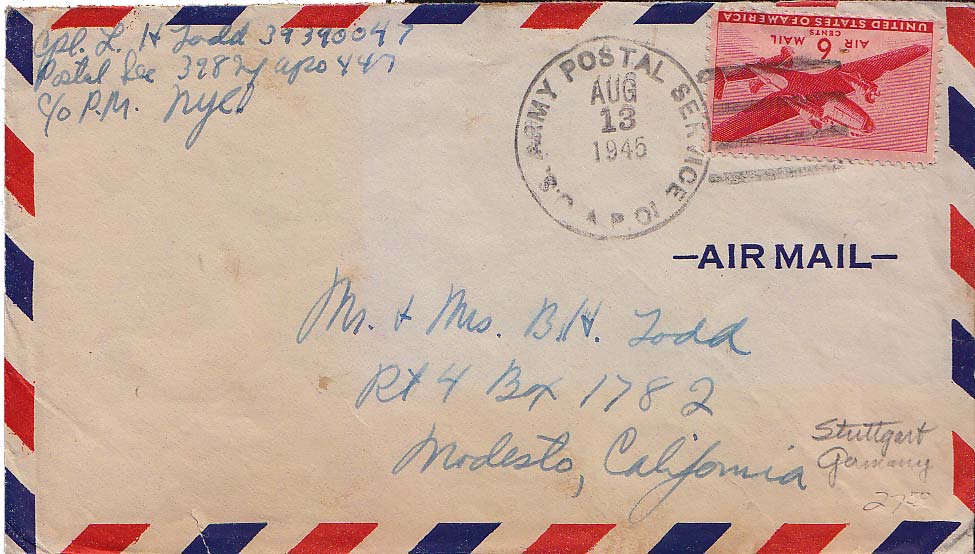 Cpl. L. H Todd 39390047
Postal Sec 3982 apo 447
c/o P.M. NYC
U.S. ARMY POSTAL SERVICE
AUG
13
1945
A.P.O.
UNITED STATES OF AMERICA
AIR MAIL
6 CENTS
—AIR MAIL—
Mr. & Mrs. B.H. Todd
Rt 4 Box 1782
Modesto, California
Stuttgart
Germany
27.50